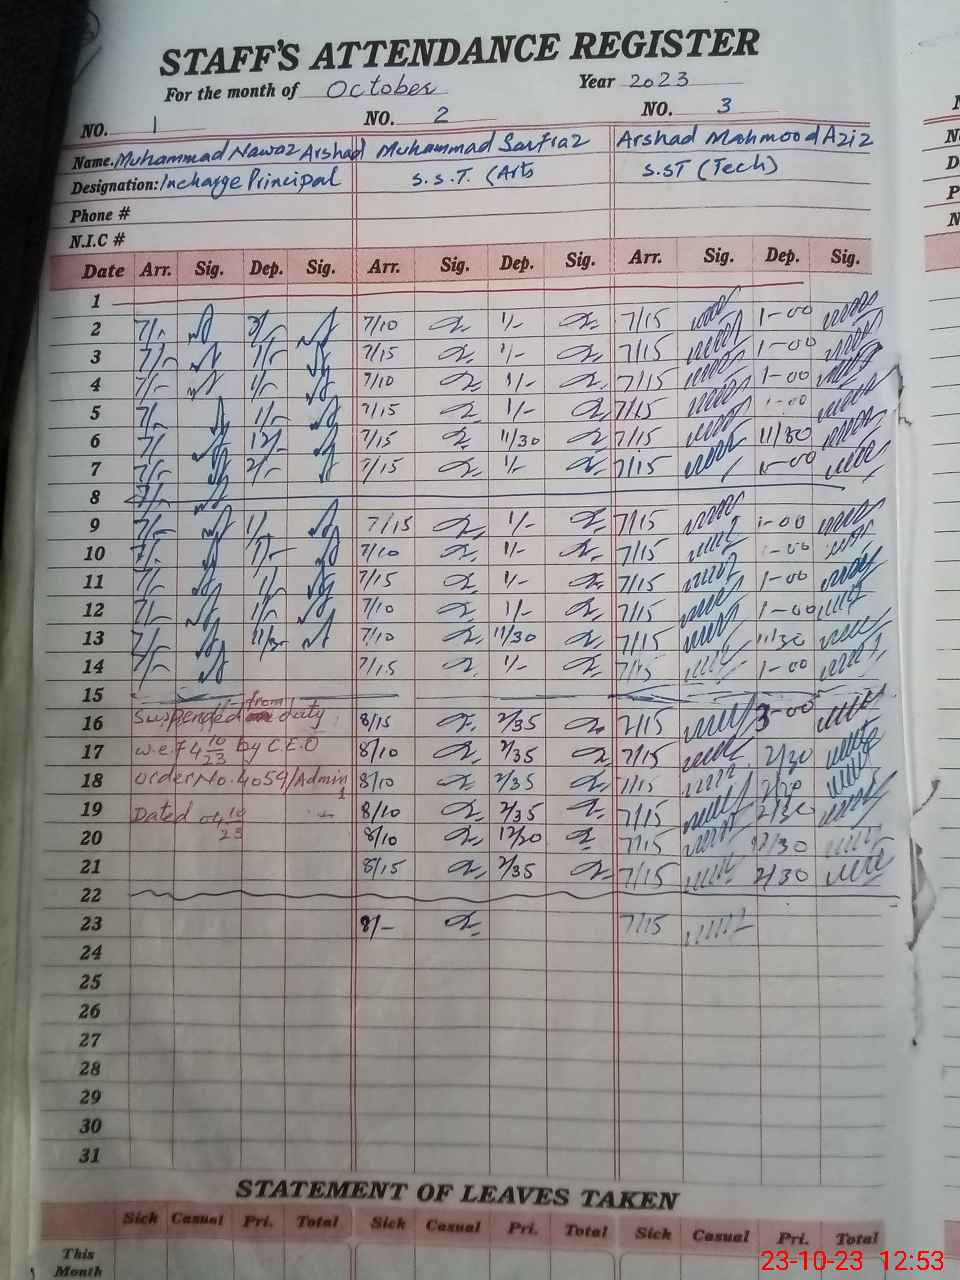 STAFF'S ATTENDANCE REGISTER
For the month of October Year 2023
NO. 1 NO. 2 NO. 3
Name. Muhammad Nawaz Arshad Muhammad Sarfraz Arshad Mahmood Aziz
Designation: Incharge Principal S.S.T. (Arts S.ST (Tech)
Phone #
N.I.C #
Date Arr. Sig. Dep. Sig. Arr. Sig. Dep. Sig. Arr. Sig. Dep. Sig.
1
2 7/- 7/10 1/- 7/15 1-00
3 7/- 1/- 7/15 1/- 7/15 1-00
4 7/- 1/- 7/10 1/- 7/15 1-00
5 7/- 1/- 7/15 1/- 7/15 1-00
6 7/ 12/- 7/15 11/30 7/15 11/30
7 7/- 2/- 7/15 1/- 7/15 1-00
8 7/-
9 7/- 1/- 7/15 1/- 7/15 1-00
10 7/- 1/- 7/10 1/- 7/15 1-00
11 7/- 1/- 7/15 1/- 7/15 1-00
12 7/- 1/- 7/10 1/- 7/15 1-00
13 7/- 11/30 7/10 11/30 7/15 11/30
14 7/- 7/15 1/- 7/15 1-00
15
16 Suspended from duty 8/15 2/35 7/15 3-00
17 w.e.f 4 10/23 by C.E.O 8/10 2/35 7/15 2/30
18 order No. 4059/Admin 1 8/10 2/35 7/15
19 Dated 04 10/23 8/10 2/35 7/15 2/30
20 8/10 12/20 7/15 12/30
21 8/15 2/35 7/15 2/30
22
23 8/- 7/15
24
25
26
27
28
29
30
31
STATEMENT OF LEAVES TAKEN
Sick Casual Pri. Total Sick Casual Pri. Total Sick Casual Pri. Total
This
Month
23-10-23 12:53